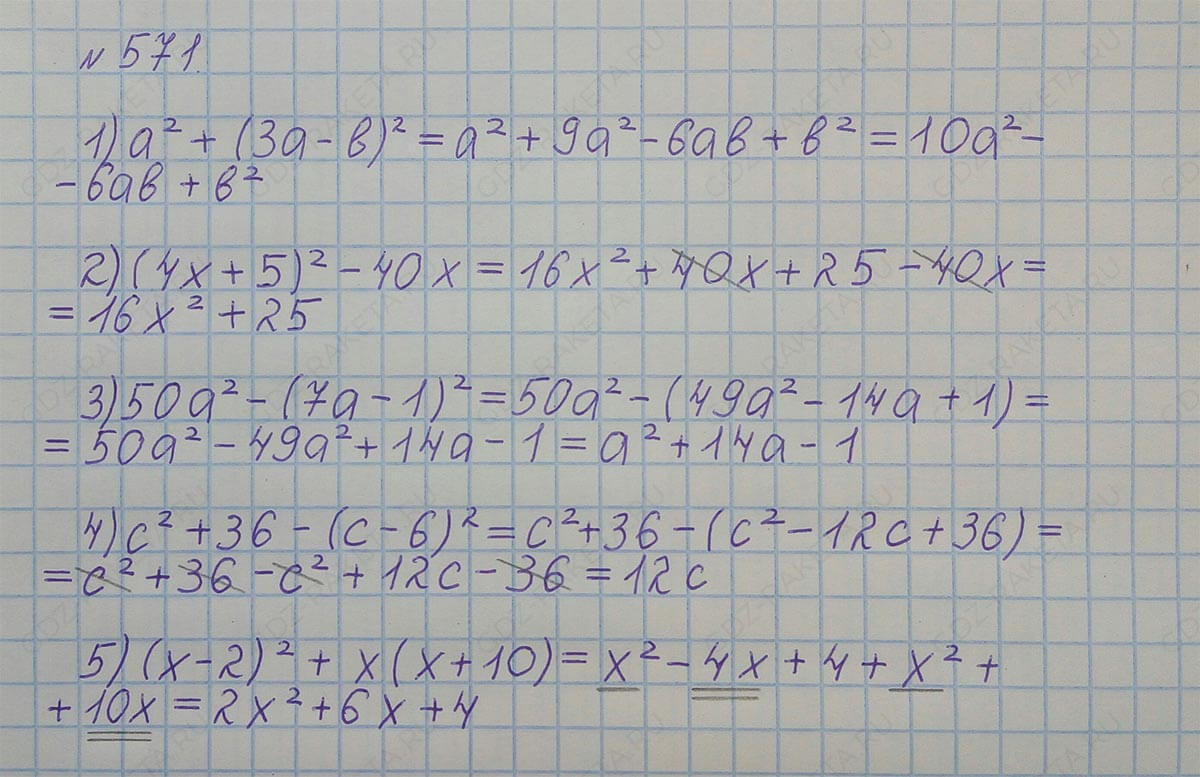 № 571.
1) a² + (3a - в)² = a² + 9a² - 6aв + в² = 10a² -
- 6aв + в²
2) (4x + 5)² - 40x = 16x² + 40x + 25 - 40x =
= 16x² + 25
3) 50a² - (7a - 1)² = 50a² - (49a² - 14a + 1) =
= 50a² - 49a² + 14a - 1 = a² + 14a - 1
4) c² + 36 - (c - 6)² = c² + 36 - (c² - 12c + 36) =
= c² + 36 - c² + 12c - 36 = 12c
5) (x - 2)² + x(x + 10) = x² - 4x + 4 + x² +
+ 10x = 2x² + 6x + 4
GDZ-RAKETA.RU